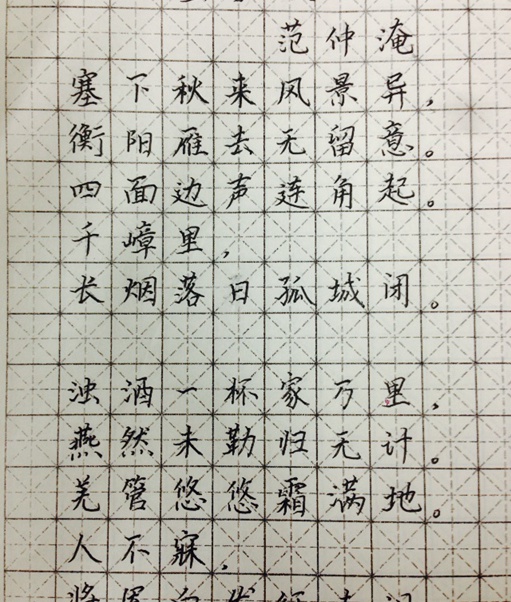 范仲淹
塞下秋来风景异，
衡阳雁去无留意。
四面边声连角起。
千嶂里，
长烟落日孤城闭。
浊酒一杯家万里，
燕然未勒归无计。
羌管悠悠霜满地。
人不寐，